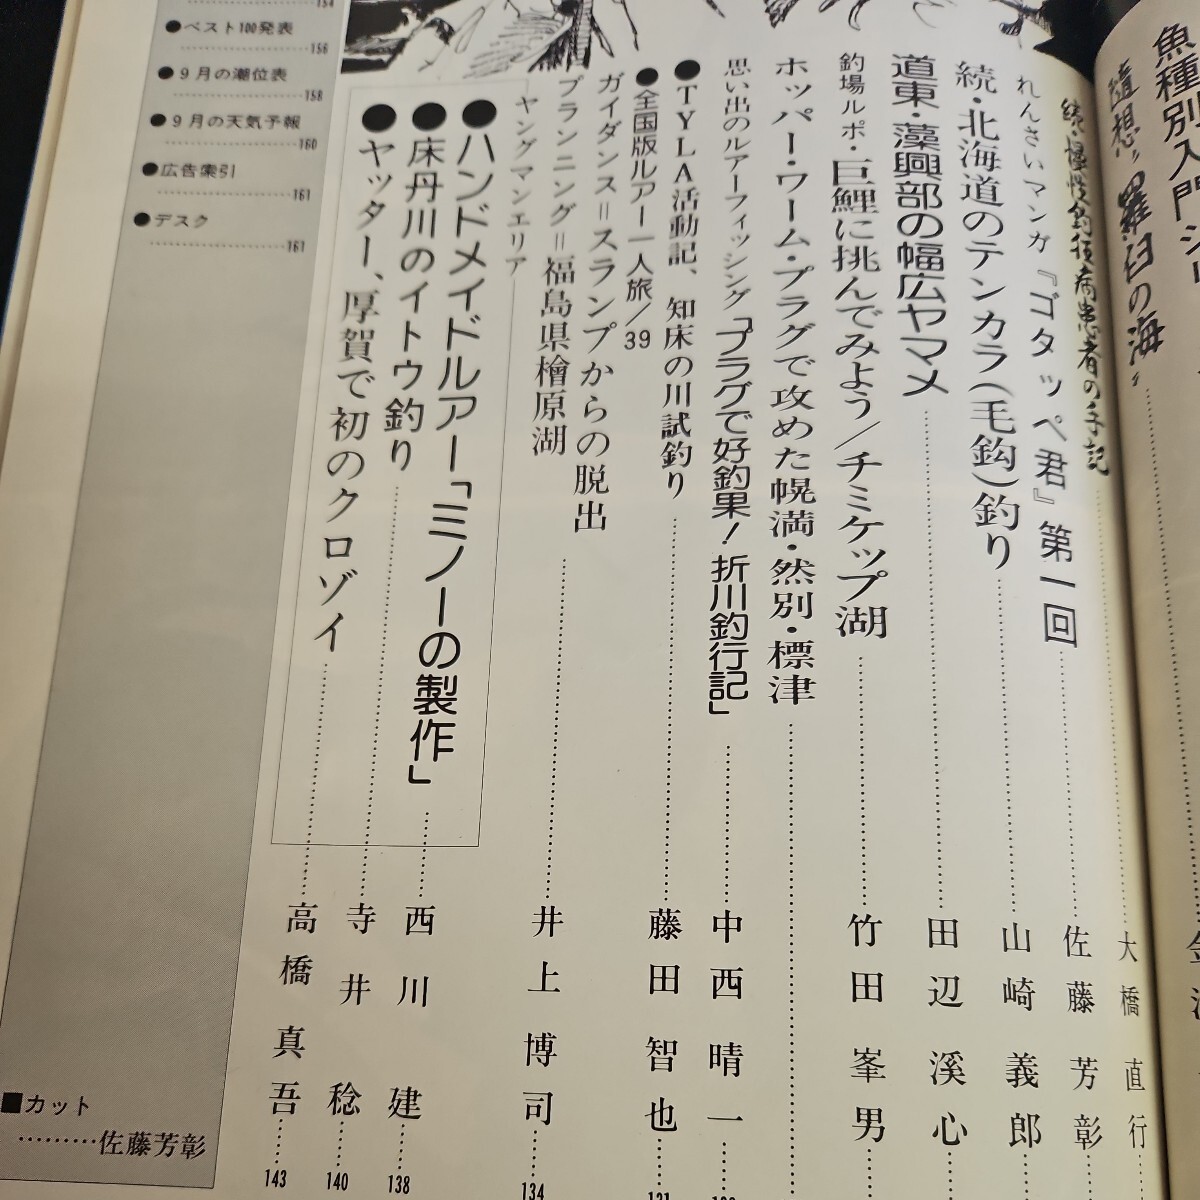 魚種別入門シリ
随想〝羅臼の海〟
続・慢性釣狂病患者の手記…大橋直行
れんさいマンガ『ゴタッペ君』第一回…佐藤芳彰
続・北海道のテンカラ(毛鈎)釣り…山崎義郎
道東・藻興部の幅広ヤマメ…田辺溪心
釣場ルポ・巨鯉に挑んでみよう/チミケップ湖…竹田峯男
ホッパー・ワーム・プラグで攻めた幌満・然別・標津
思い出のルアーフィッシング「プラグで好釣果!折川釣行記」…中西晴一
●TYLA活動記、知床の川試釣り…藤田智也
●全国版ルアー一人旅/39
ガイダンス=スランプからの脱出
プランニング=福島県檜原湖…井上博司…134
ヤングマンエリア
●ハンドメイドルアー「ミノーの製作」…西川建…138
●床丹川のイトウ釣り…寺井稔…140
●ヤッター、厚賀で初のクロゾイ…高橋真吾…143
154
●ベスト100発表…156
●9月の潮位表…158
●9月の天気予報…160
●広告索引…161
●デスク…161
■カット
………佐藤芳彰